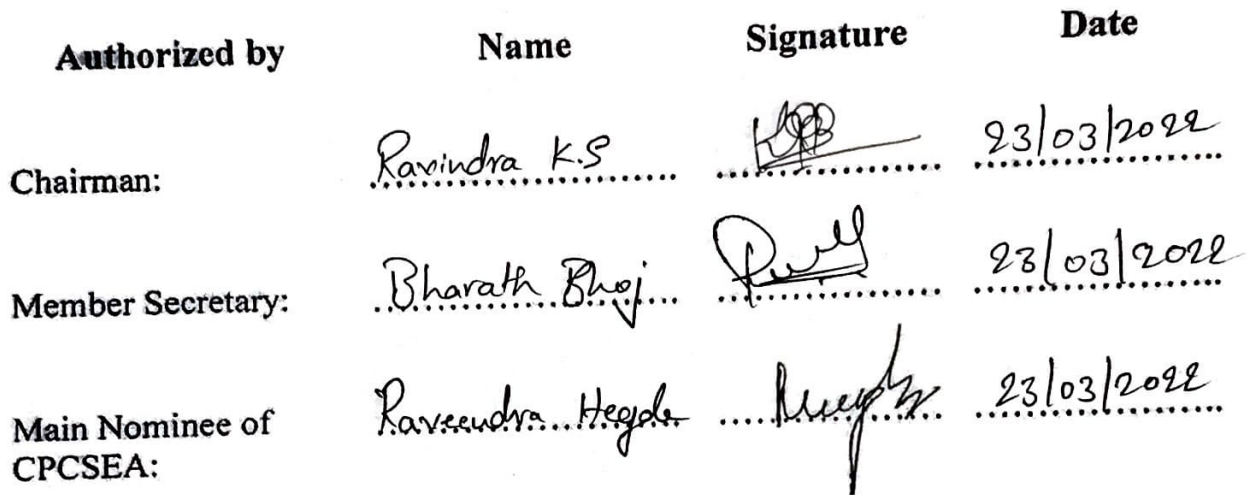 Authorized by Name Signature Date
Chairman: Ravindra K.S 23/03/2022
Member Secretary: Bharath Bhoj 23/03/2022
Main Nominee of Raveendra Hegde 23/03/2022
CPCSEA: